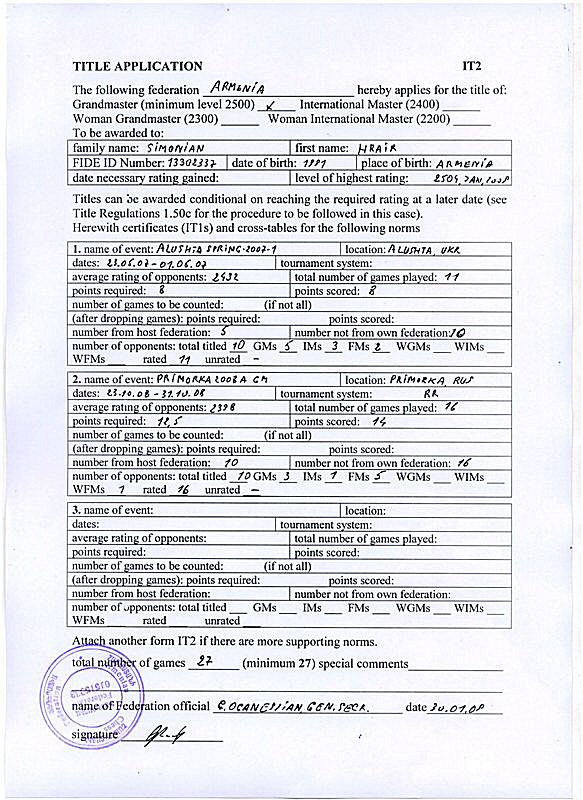 TITLE APPLICATION IT2
The following federation ARMENIA hereby applies for the title of:
Grandmaster (minimum level 2500) ✓ International Master (2400)
Woman Grandmaster (2300) Woman International Master (2200)
To be awarded to:
family name: SIMONIAN first name: HRAIR
FIDE ID Number: 13302337 date of birth: 1991 place of birth: ARMENIA
date necessary rating gained: level of highest rating: 2504, JAN,
Titles can be awarded conditional on reaching the required rating at a later date (see
Title Regulations 1.50c for the procedure to be followed in this case).
Herewith certificates (IT1s) and cross-tables for the following norms
1. name of event: ALUSHTA SPRING-2007-1 location: ALUSHTA, UKR
dates: 23.05.07-01.06.07 tournament system:
average rating of opponents: 2432 total number of games played: 11
points required: 8 points scored: 8
number of games to be counted: (if not all)
(after dropping games): points required: points scored:
number from host federation: 5 number not from own federation: 10
number of opponents: total titled 10 GMs 5 IMs 3 FMs 2 WGMs WIMs
WFMs rated 11 unrated –
2. name of event: PRIMORKA 2008A GM location: PRIMORKA, RUS
dates: 23.10.08-31.10.08 tournament system: RR
average rating of opponents: 2398 total number of games played: 16
points required: 12,5 points scored: 14
number of games to be counted: (if not all)
(after dropping games): points required: points scored:
number from host federation: 10 number not from own federation: 16
number of opponents: total titled 10 GMs 3 IMs 1 FMs 5 WGMs WIMs
WFMs 1 rated 16 unrated –
3. name of event: location:
dates: tournament system:
average rating of opponents: total number of games played:
points required: points scored:
number of games to be counted: (if not all)
(after dropping games): points required: points scored:
number from host federation: number not from own federation:
number of opponents: total titled GMs IMs FMs WGMs WIMs
WFMs rated unrated
Attach another form IT2 if there are more supporting norms.
total number of games 27 (minimum 27) special comments
name of Federation official GEN. SECR. date 30.01.09
signature